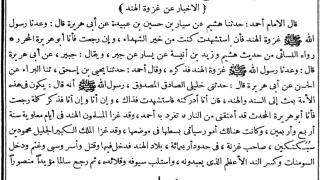 ﴿ الاخبار عن غزوة الهند ﴾
قال الامام أحمد : حدثنا هشيم عن سيار بن حسين بن عبيدة عن أبى هريرة قال : وعدنا رسول
الله ﷺ غزوة الهند فان استشهدت كنت من خير الشهداء ، وإن رجعت فأنا أبو هريرة المحرر *
رواه النسائى من حديث هشيم وزيد بن أنيسة عن يسار عن جبر ، ويقال : جبير ، عن أبى هريرة
قال : وعدنا رسول الله ﷺ غزوة الهند فذكره * وقال أحمد : حدثنا يحيى بن إسحق ، ثنا البراء عن
الحسن عن أبى هريرة قال : حدثنى خليلى الصادق المصدوق ، رسول الله ﷺ أنه قال : يكون فى هذه
الأمة بعث إلى السند والهند ، فان أنا أدركته فاستشهدت فذاك ، وإن أنا وإن أنا فذكر كلمة رجعت
فأنا أبو هريرة المحدث قد أعتقنى من النار * تفرد به أحمد ، وقد غزا المسلمون الهند فى أيام معاوية سنة
أربع وأربعين ، وكانت هنالك أمور سيأتى بسطها فى موضعها ، وقد غزا الملك الكبير الجليل محمود بن
سبكتكين ، صاحب غزنة ، فى حدود أربعمائة ، بلاد الهند فدخل فيها وقتل وأسر وسبى وغنم ودخل
السومنات وكسر الند الأعظم الذى يعبدونه ، واستلب سيوفه وقلائده ، ثم رجع سالما مؤيداً منصوراً